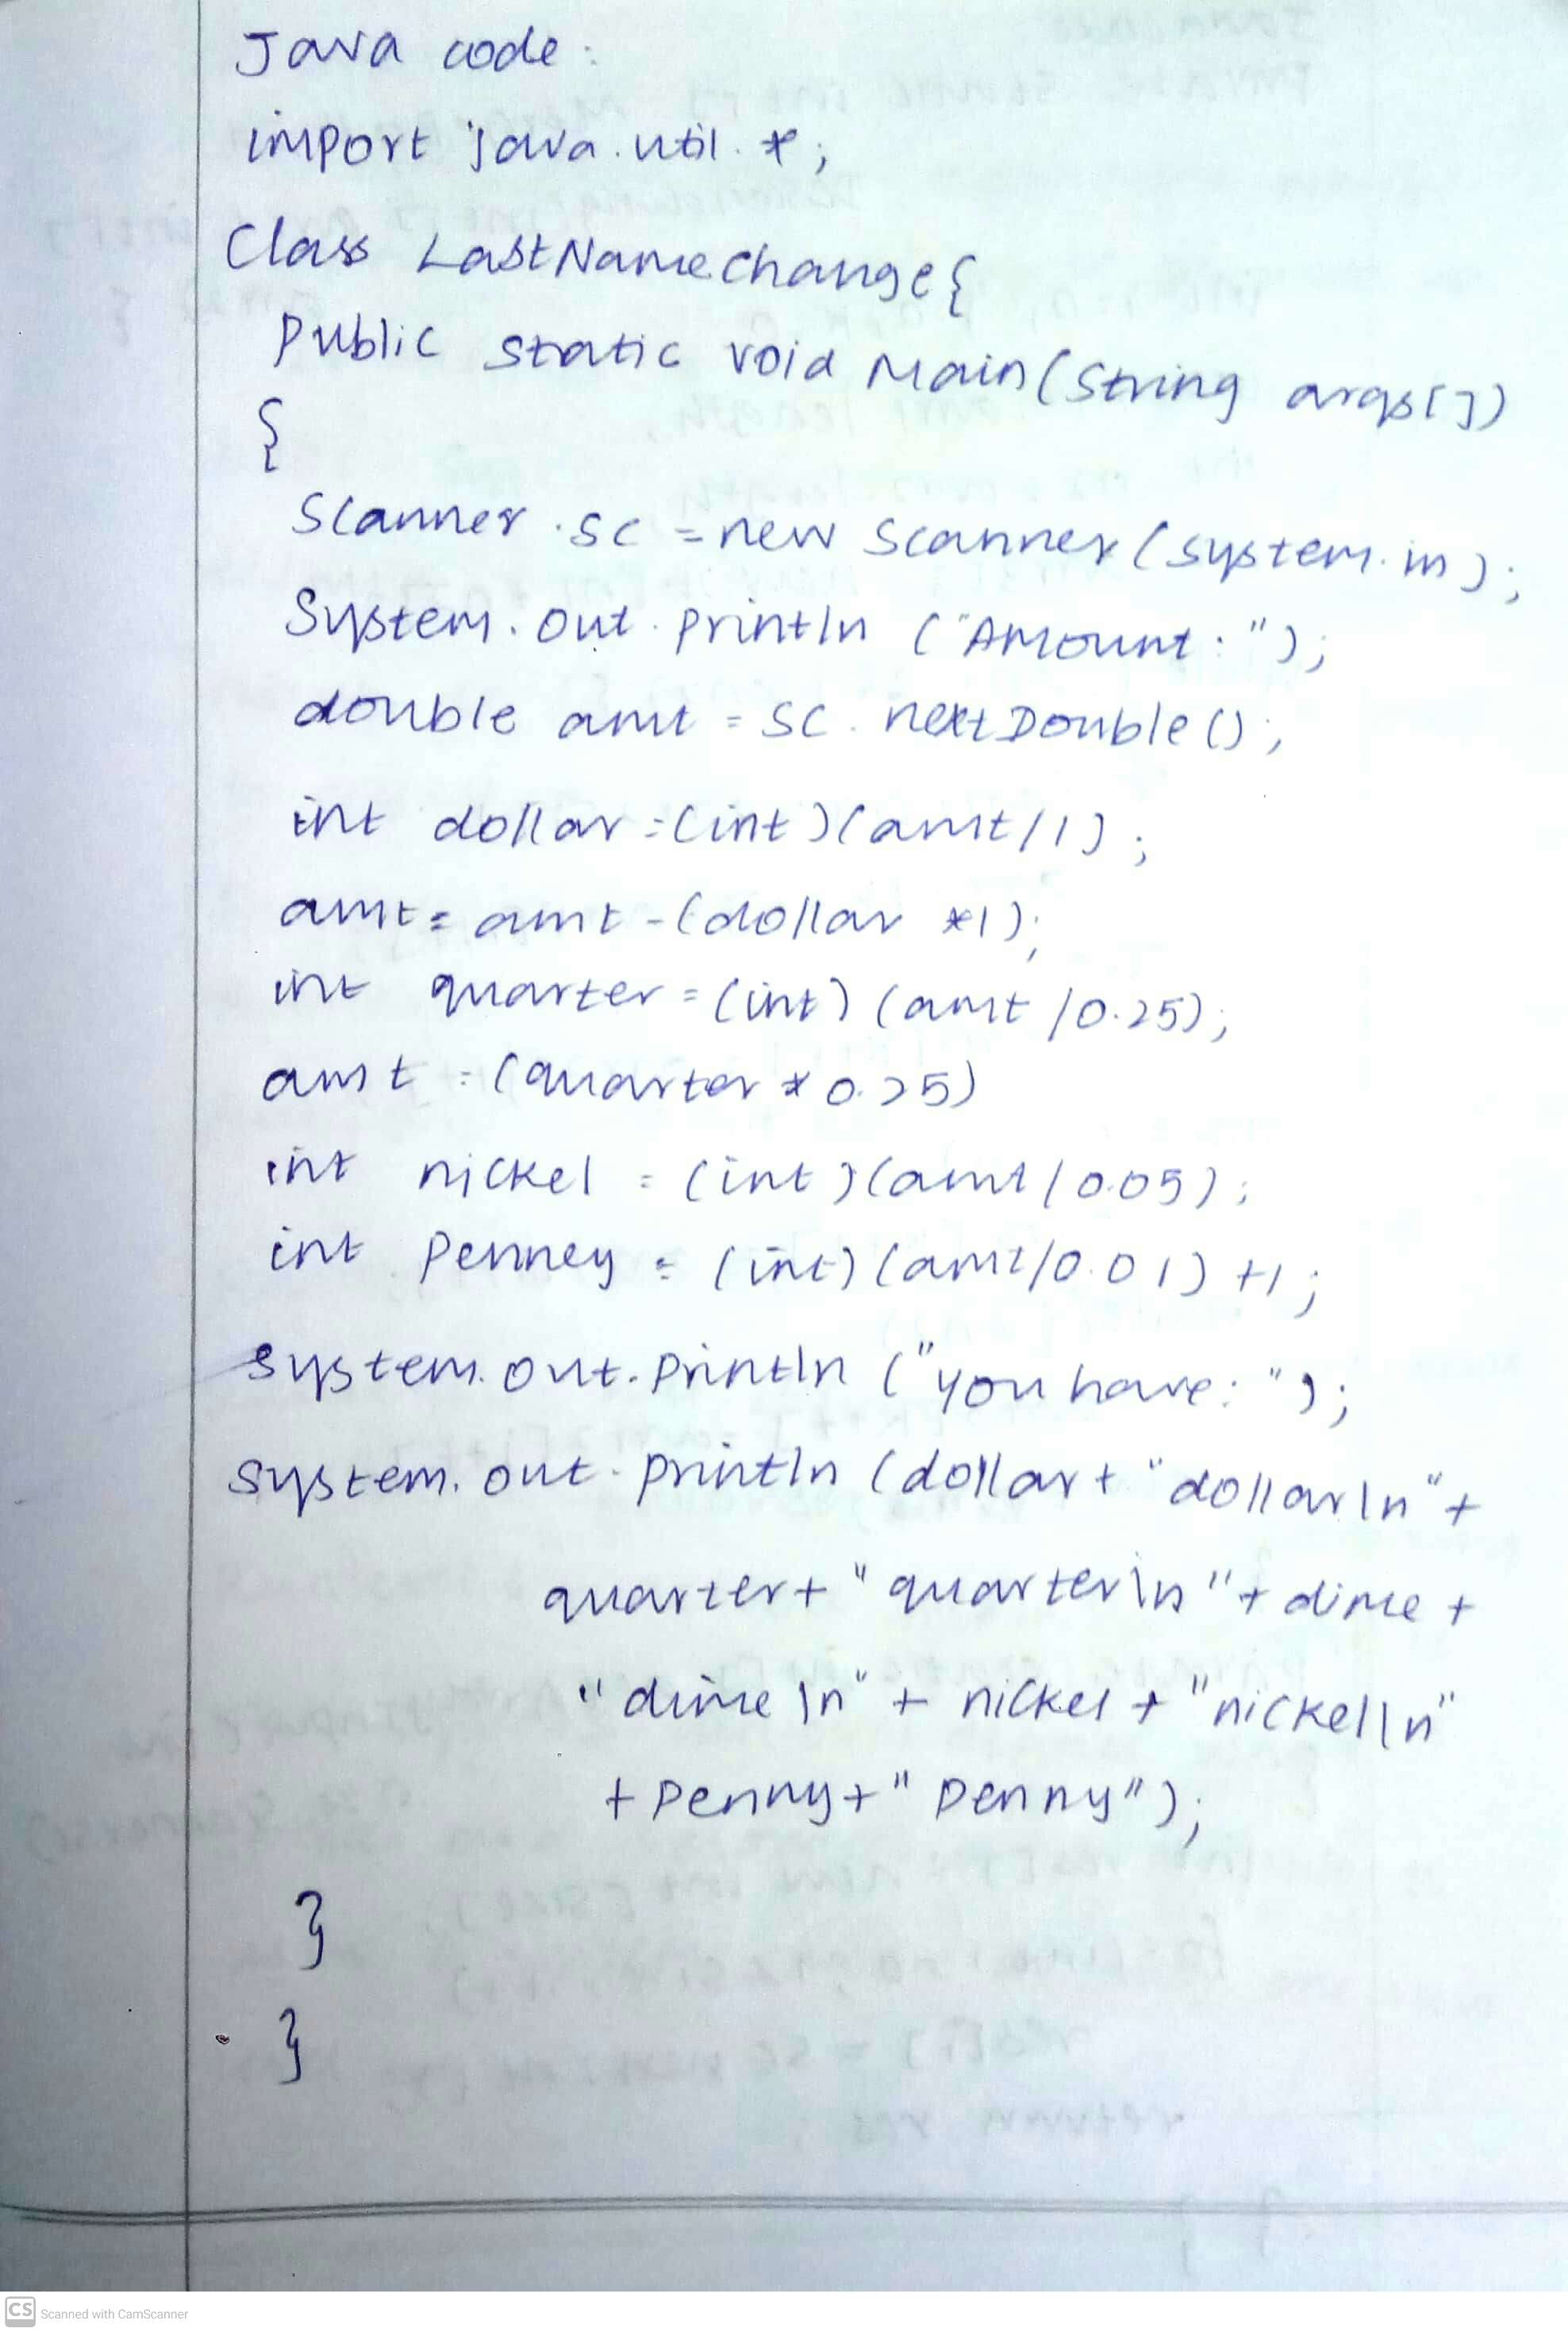 Java code:
import java.util.*;
Class LastNamechange{
Public static void Main(String args[])
{
Scanner sc = new Scanner(system.in);
System.out.println ("Amount:");
double amt = sc.nextDouble();
int dollar =(int)(amt/1);
amt= amt-(dollar *1);
int quarter = (int) (amt /0.25);
amt = (quarter * 0.25)
int nickel = (int)(amt/0.05);
int Penney = (int)(amt/0.01) +1;
System.out.println ("you have:");
System.out.println (dollar+ "dollar\n"+
quarter+ "quarter\n"+ dime +
"dime \n" + nickel + "nickel\n"
+ Penny+" Penny");
}
}
CS Scanned with CamScanner